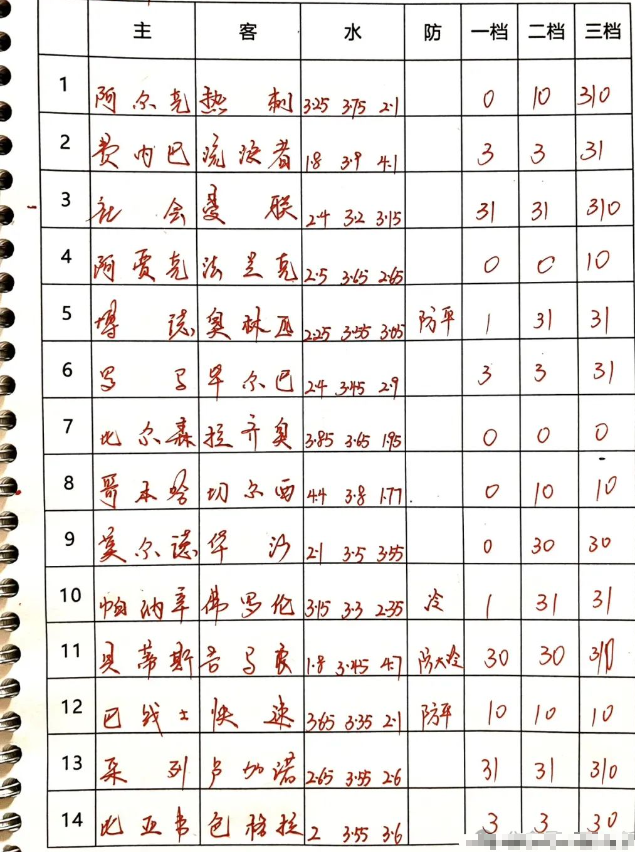 主 客 水 防 一档 二档 三档
1 阿尔克 热刺 3.25 3.75 2.1 0 10 310
2 费内巴 流浪者 1.8 3.9 4.1 3 3 31
3 社会 曼联 2.4 3.2 3.15 31 31 310
4 阿贾克 法兰克 2.5 3.65 2.65 0 0 10
5 博德 奥林匹 2.25 3.55 3.05 防平 1 31 31
6 罗马 毕尔巴 2.4 3.45 2.9 3 3 31
7 比尔森 拉齐奥 3.85 3.65 1.95 0 0 0
8 哥本哈 切尔西 4.4 3.8 1.77 0 10 10
9 莫尔德 华沙 2.1 3.5 3.55 0 30 30
10 帕纳辛 佛罗伦 3.15 3.3 2.35 冷 1 31 31
11 贝蒂斯 吉马良 1.8 3.45 4.7 防大冷 30 30 310
12 巴战士 快速 3.65 3.35 2.1 防平 10 10 10
13 采列 卢加诺 2.65 3.55 2.6 31 31 310
14 比亚韦 包格拉 2 3.55 3.6 3 3 30